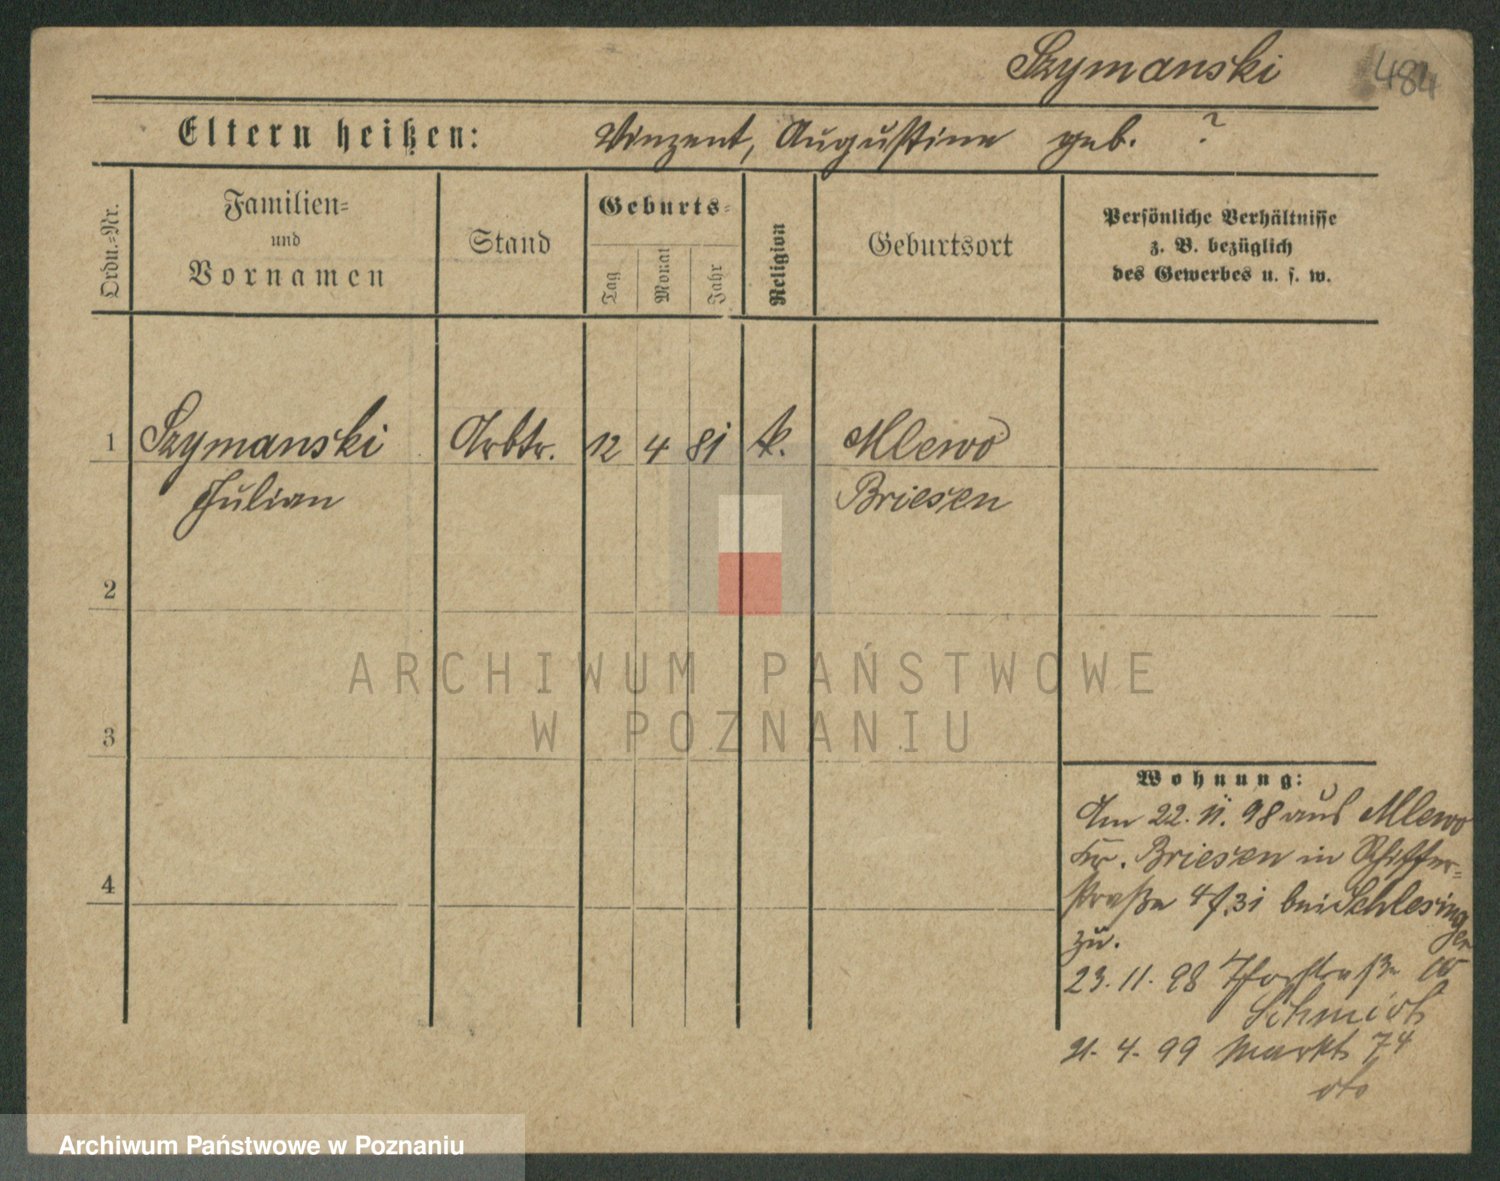 Szymanski
484
Eltern heißen: Vinzent, Augustine geb. ?
Ordn.=Nr.
Familien=
und
Vornamen
Stand
Geburts=
Tag
Monat
Jahr
Religion
Geburtsort
Persönliche Verhältnisse
z. B. bezüglich
des Gewerbes u. s. w.
1 Szymanski Arbtr. 12 4 81 k. Mlewo
Julian Briesen
2
3
4
Wohnung:
Am 22. 11. 98 aus Mlewo
Kr. Briesen in Schiffer=
straße bei Schlesinger
zu.
23. 11. 98
Schmidt
21. 4. 99 Markt 74
dto
ARCHIWUM PAŃSTWOWE
W POZNANIU
Archiwum Państwowe w Poznaniu